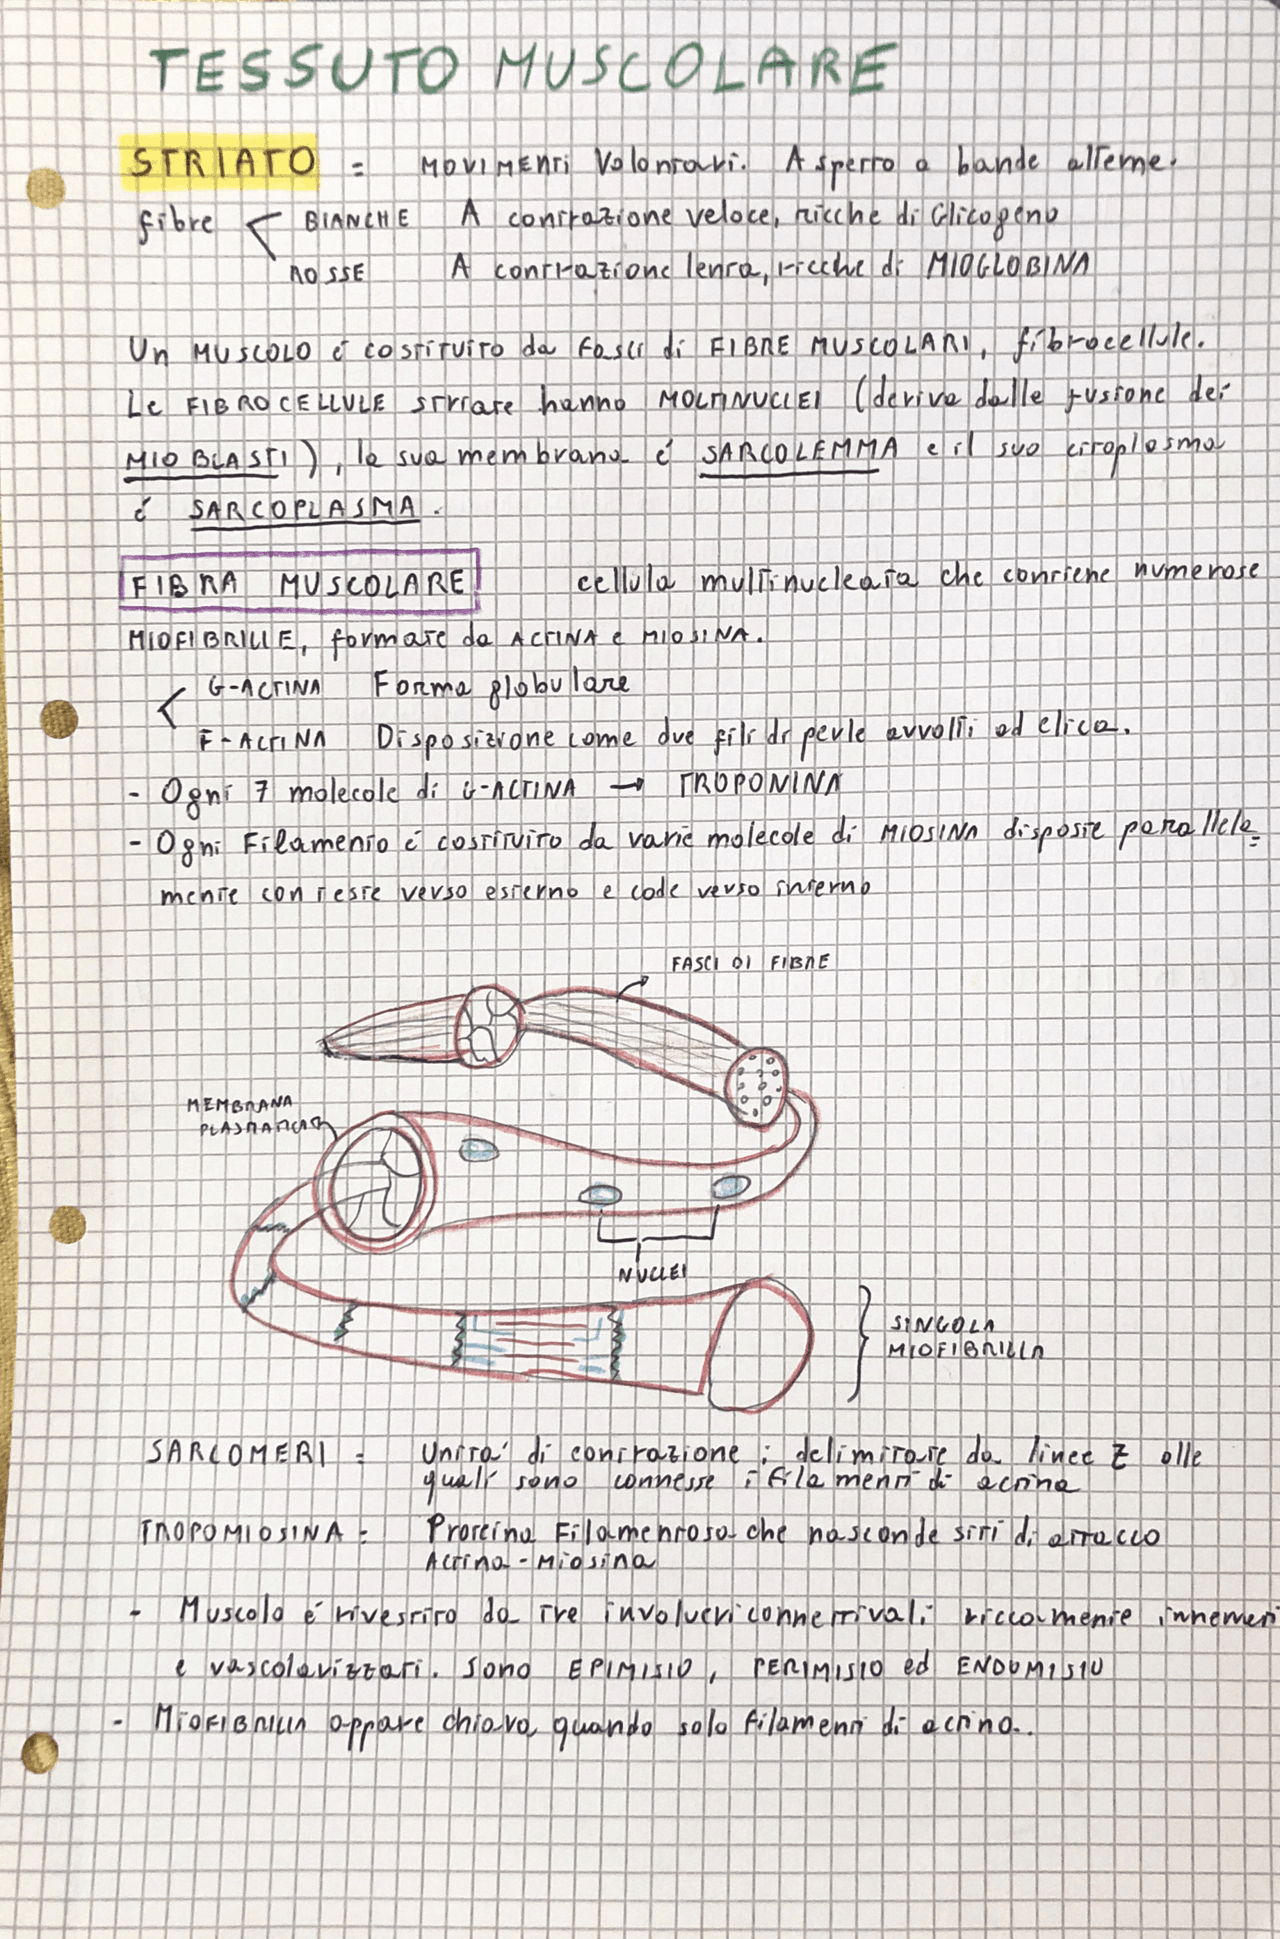 TESSUTO MUSCOLARE
STRIATO = MOVIMENTI Volontari. Aspetto a bande alterne.
fibre < BIANCHE A contrazione veloce, ricche di Glicogeno
ROSSE A contrazione lenta, ricche di MIOGLOBINA
Un MUSCOLO é costituito da fasci di FIBRE MUSCOLARI, fibrocellule.
Le FIBROCELLULE striate hanno MOLTINUCLEI (deriva dalle fusione dei
MIOBLASTI), la sua membrana é SARCOLEMMA e il suo citoplasma
é SARCOPLASMA.
FIBRA MUSCOLARE cellula multinucleata che contiene numerose
MIOFIBRILLE, formate da ACTINA e MIOSINA.
< G-ACTINA Forma globulare
F-ACTINA Disposizione come due fili di perle avvolti ad elica.
- Ogni 7 molecole di G-ACTINA → TROPONINA
- Ogni Filamento é costituito da varie molecole di MIOSINA disposte parallela=
mente con teste verso esterno e code verso interno
FASCI DI FIBRE
MEMBRANA
PLASMATICA
NUCLEI
SINGOLA
MIOFIBRILLA
SARCOMERI = Unita' di contrazione; delimitate da linee Z alle
quali sono connesse i filamenti di actina
TROPOMIOSINA = Proteina Filamentosa che nasconde siti di attacco
Actina-Miosina
- Muscolo é rivestito da tre involucri connettivali riccamente innervati
e vascolarizzati. Sono EPIMISIO, PERIMISIO ed ENDOMISIO
- MIOFIBRILLA appare chiara quando solo filamenti di actina.